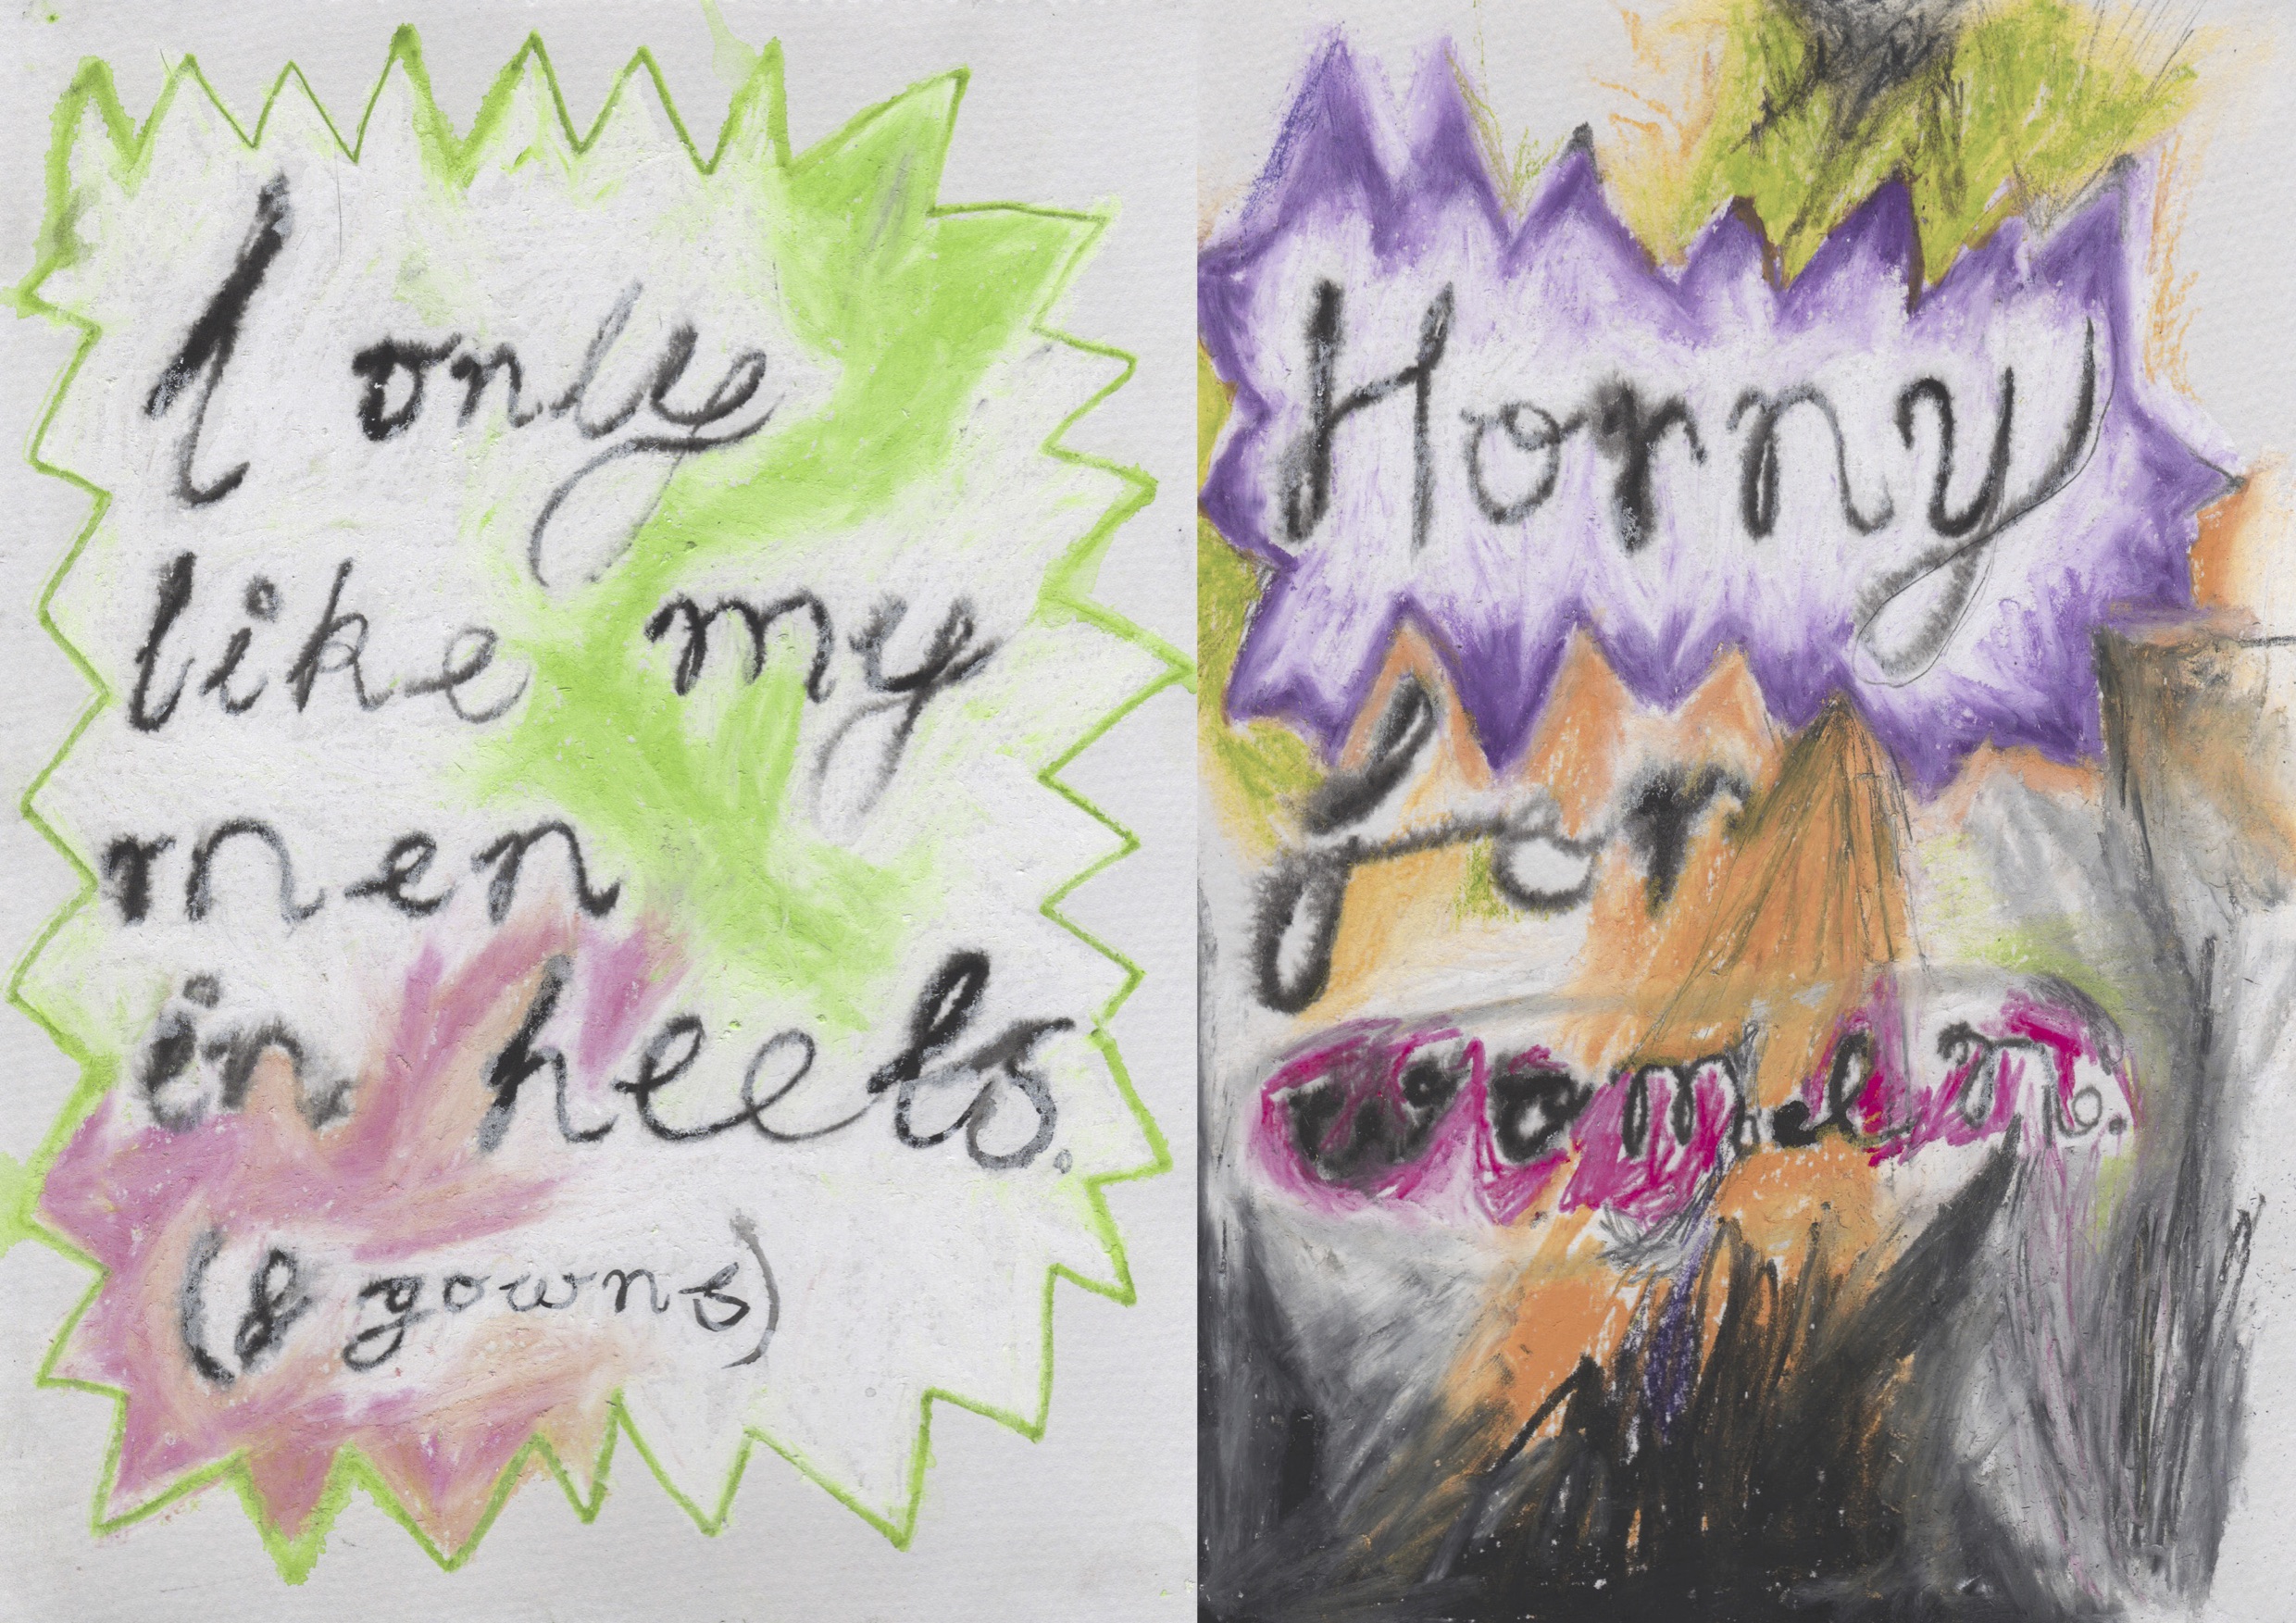 I only
like my
men
in heels.
(& gowns)
Horny
for
women.